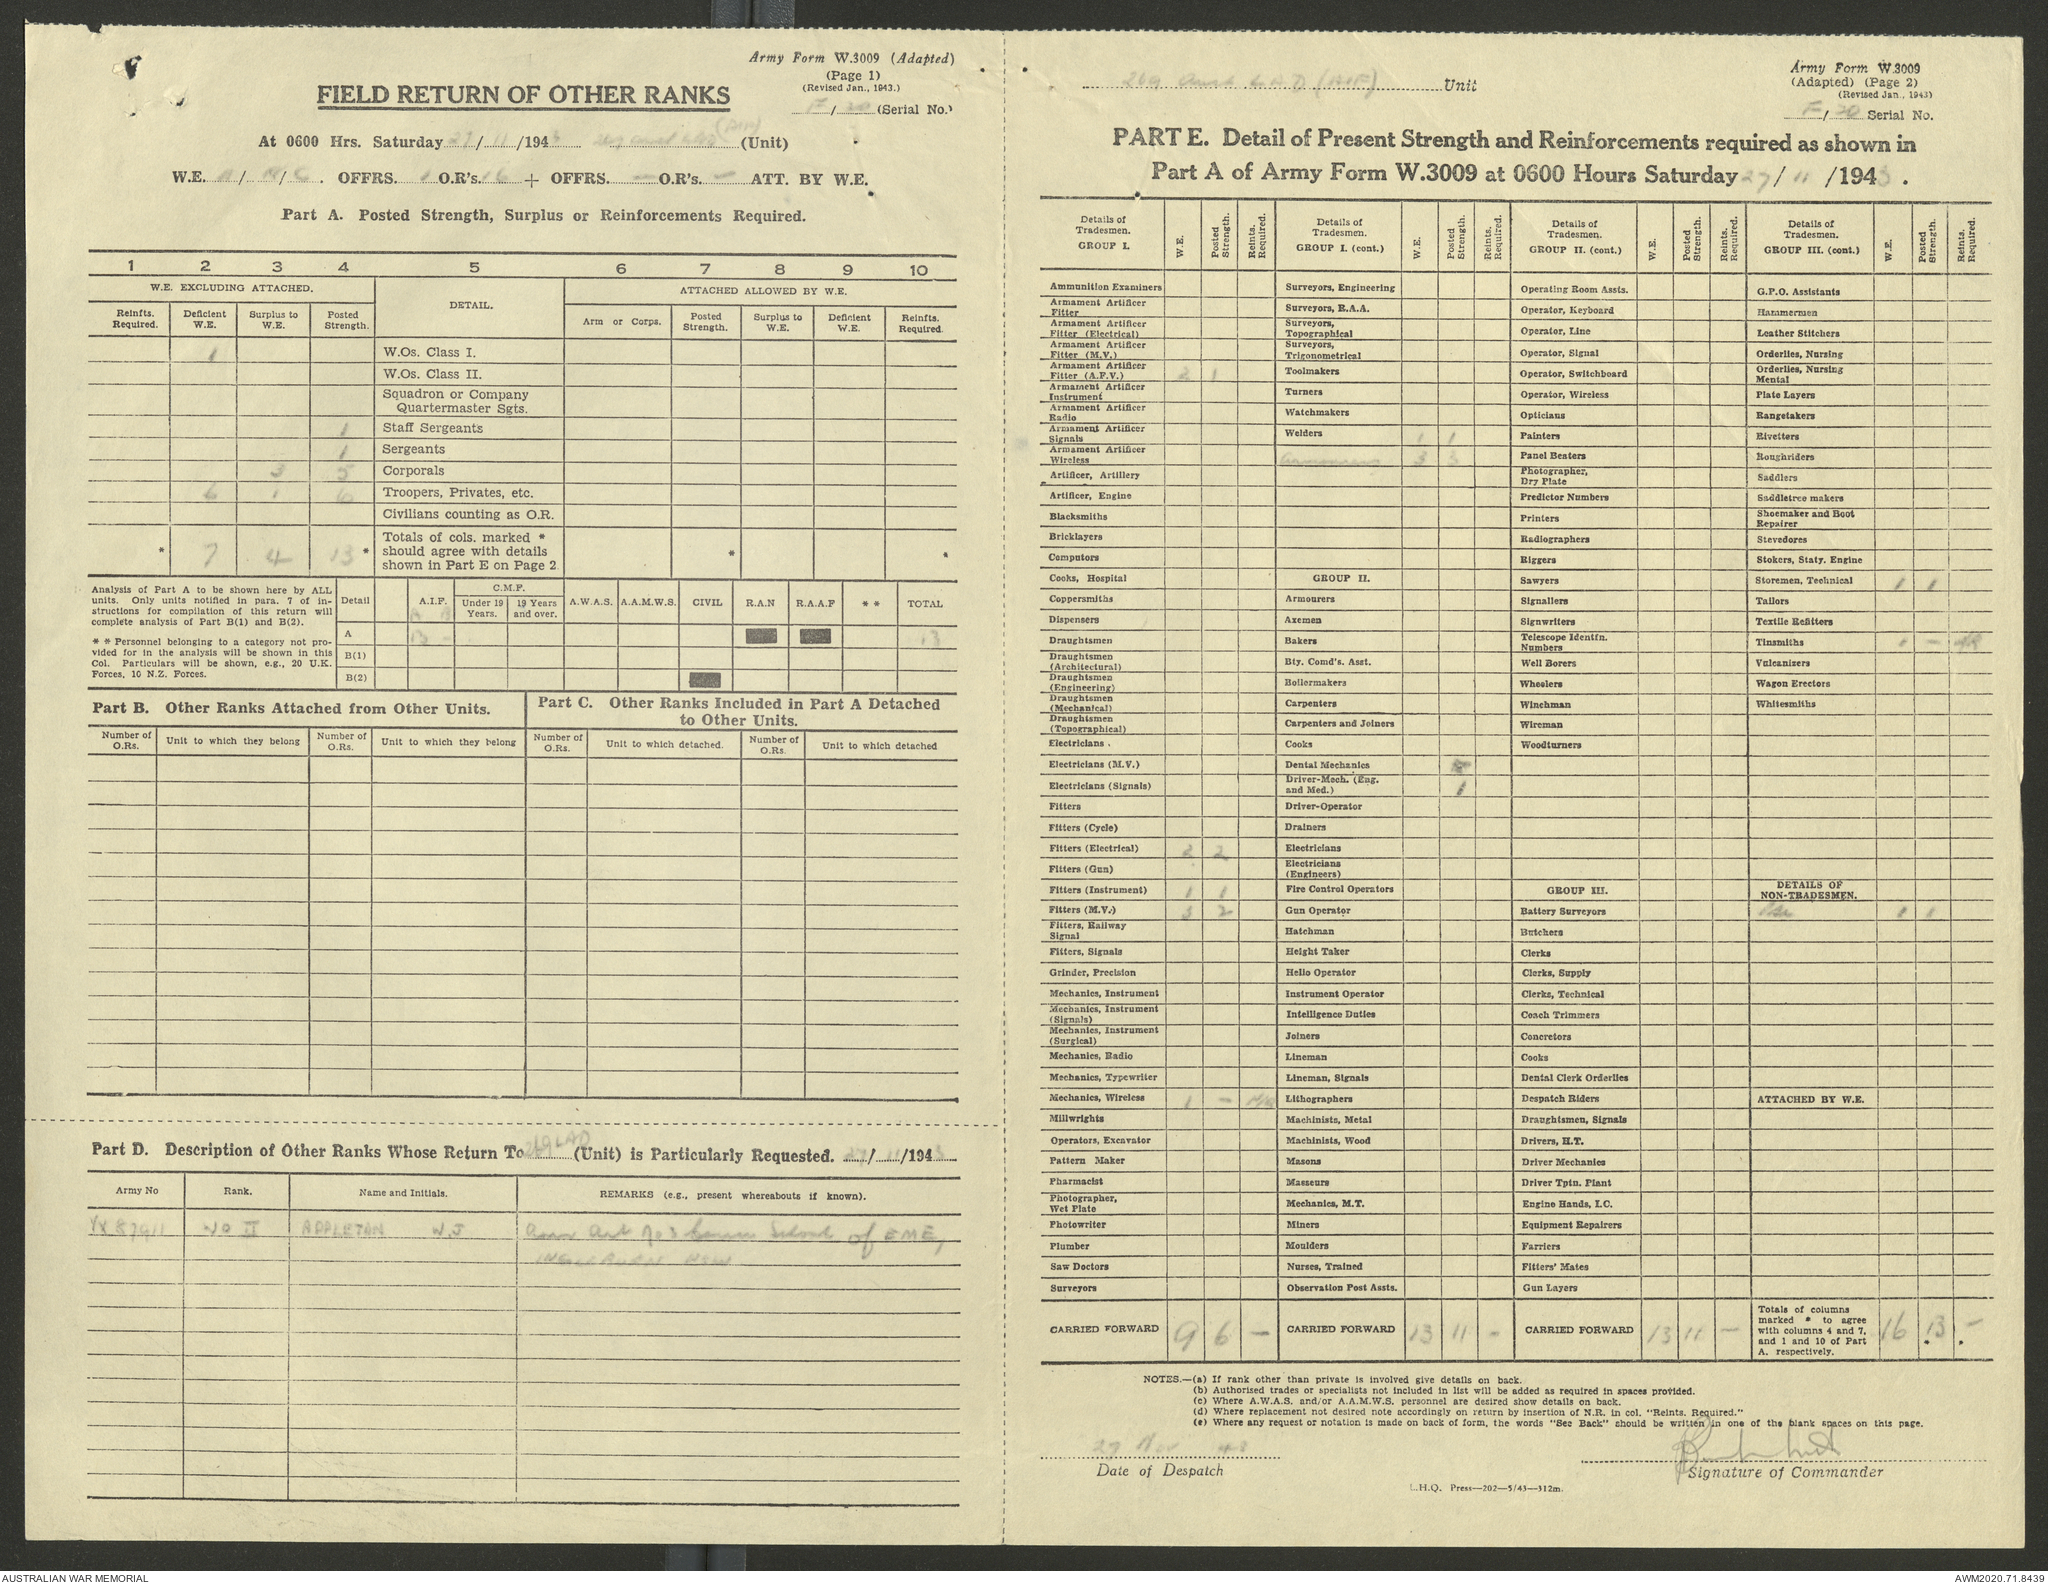 Army Form W.3009 (Adapted)
(Page 1)
(Revised Jan., 1943.)
FIELD RETURN OF OTHER RANKS
F/20 (Serial No.)
At 0600 Hrs. Saturday 27/11/1943 (AIF) (Unit)
W.E. / / . OFFRS. 1 O.R's. 16 + OFFRS. — O.R's. — ATT. BY W.E.
Part A. Posted Strength, Surplus or Reinforcements Required.
1 2 3 4 5 6 7 8 9 10
W.E. EXCLUDING ATTACHED. DETAIL. ATTACHED ALLOWED BY W.E.
Reinfts. Required. Deficient W.E. Surplus to W.E. Posted Strength. Arm or Corps. Posted Strength. Surplus to W.E. Deficient W.E. Reinfts. Required.
1 W.Os. Class I.
W.Os. Class II.
Squadron or Company
Quartermaster Sgts.
1 Staff Sergeants
1 Sergeants
3 5 Corporals
6 1 6 Troopers, Privates, etc.
Civilians counting as O.R.
* 7 4 13 * Totals of cols. marked * should agree with details shown in Part E on Page 2. * *
Analysis of Part A to be shown here by ALL
units. Only units notified in para. 7 of in-
structions for compilation of this return will
complete analysis of Part B(1) and B(2).
* * Personnel belonging to a category not pro-
vided for in the analysis will be shown in this
Col. Particulars will be shown, e.g., 20 U.K.
Forces, 10 N.Z. Forces.
Detail A.I.F. C.M.F. Under 19 Years. 19 Years and over. A.W.A.S. A.A.M.W.S. CIVIL R.A.N R.A.A.F * * TOTAL
A 13 - 13
B(1)
B(2)
Part B. Other Ranks Attached from Other Units.
Part C. Other Ranks Included in Part A Detached
to Other Units.
Number of O.Rs. Unit to which they belong Number of O.Rs. Unit to which they belong Number of O.Rs. Unit to which detached. Number of O.Rs. Unit to which detached
Part D. Description of Other Ranks Whose Return To 269 LAD (Unit) is Particularly Requested. 27/11/1943
Army No Rank. Name and Initials. REMARKS (e.g., present whereabouts if known).
VX87911 WO II APPLETAN W.J School of EME,
INGLEBURN NSW.
269 Aust L.A.D (AIF) Unit
Army Form W.3009
(Adapted) (Page 2)
(Revised Jan., 1943)
F/20 Serial No.
PART E. Detail of Present Strength and Reinforcements required as shown in
Part A of Army Form W.3009 at 0600 Hours Saturday 27/11/1943.
Details of Tradesmen. GROUP I. W.E. Posted Strength. Reints. Required.
Ammunition Examiners
Armament Artificer Fitter
Armament Artificer Fitter (Electrical)
Armament Artificer Fitter (M.V.)
Armament Artificer Fitter (A.F.V.) 2 1
Armament Artificer Instrument
Armament Artificer Radio
Armament Artificer Signals
Armament Artificer Wireless
Artificer, Artillery
Artificer, Engine
Blacksmiths
Bricklayers
Computors
Cooks, Hospital
Coppersmiths
Dispensers
Draughtsmen
Draughtsmen (Architectural)
Draughtsmen (Engineering)
Draughtsmen (Mechanical)
Draughtsmen (Topographical)
Electricians .
Electricians (M.V.)
Electricians (Signals)
Fitters
Fitters (Cycle)
Fitters (Electrical) 2 2
Fitters (Gun)
Fitters (Instrument) 1 1
Fitters (M.V.) 3 2
Fitters, Railway Signal
Fitters, Signals
Grinder, Precision
Mechanics, Instrument
Mechanics, Instrument (Signals)
Mechanics, Instrument (Surgical)
Mechanics, Radio
Mechanics, Typewriter
Mechanics, Wireless 1 -
Millwrights
Operators, Excavator
Pattern Maker
Pharmacist
Photographer, Wet Plate
Photowriter
Plumber
Saw Doctors
Surveyors
CARRIED FORWARD 9 6 -
Details of Tradesmen. GROUP I. (cont.) W.E. Posted Strength. Reints. Required.
Surveyors, Engineering
Surveyors, R.A.A.
Surveyors, Topographical
Surveyors, Trigonometrical
Toolmakers
Turners
Watchmakers
Welders 1 1
Armourers 3 3
GROUP II.
Armourers
Axemen
Bakers
Bty. Comd's. Asst.
Boilermakers
Carpenters
Carpenters and Joiners
Cooks
Dental Mechanics
Driver-Mech. (Eng. and Med.) 1
Driver-Operator
Drainers
Electricians
Electricians (Engineers)
Fire Control Operators
Gun Operator
Hatchman
Height Taker
Helio Operator
Instrument Operator
Intelligence Duties
Joiners
Lineman
Lineman, Signals
Lithographers
Machinists, Metal
Machinists, Wood
Masons
Masseurs
Mechanics, M.T.
Miners
Moulders
Nurses, Trained
Observation Post Assts.
CARRIED FORWARD 13 11 -
Details of Tradesmen. GROUP II. (cont.) W.E. Posted Strength. Reints. Required.
Operating Room Assts.
Operator, Keyboard
Operator, Line
Operator, Signal
Operator, Switchboard
Operator, Wireless
Opticians
Painters
Panel Beaters
Photographer, Dry Plate
Predictor Numbers
Printers
Radiographers
Riggers
Sawyers
Signallers
Signwriters
Telescope Identfn. Numbers
Well Borers
Wheelers
Winchman
Wireman
Woodturners
GROUP III.
Battery Surveyors
Butchers
Clerks
Clerks, Supply
Clerks, Technical
Coach Trimmers
Concretors
Cooks
Dental Clerk Orderlies
Despatch Riders
Draughtsmen, Signals
Drivers, H.T.
Driver Mechanics
Driver Tptn. Plant
Engine Hands, I.C.
Equipment Repairers
Farriers
Fitters' Mates
Gun Layers
CARRIED FORWARD 13 11 -
Details of Tradesmen. GROUP III. (cont.) W.E. Posted Strength. Reints. Required.
G.P.O. Assistants
Hammermen
Leather Stitchers
Orderlies, Nursing
Orderlies, Nursing Mental
Plate Layers
Rangetakers
Rivetters
Roughriders
Saddlers
Saddletree makers
Shoemaker and Boot Repairer
Stevedores
Stokers, Staty. Engine
Storemen, Technical 1 1
Tailors
Textile Refitters
Tinsmiths 1 - NR
Vulcanizers
Wagon Erectors
Whitesmiths
DETAILS OF NON-TRADESMEN.
1 1
ATTACHED BY W.E.
Totals of columns marked * to agree with columns 4 and 7, and 1 and 10 of Part A. respectively. 16 13 -
NOTES.—(a) If rank other than private is involved give details on back.
(b) Authorised trades or specialists not included in list will be added as required in spaces provided.
(c) Where A.W.A.S. and/or A.A.M.W.S. personnel are desired show details on back.
(d) Where replacement not desired note accordingly on return by insertion of N.R. in col. "Reints. Required."
(e) Where any request or notation is made on back of form, the words "See Back" should be written in one of the blank spaces on this page.
27 Nov 43
Date of Despatch
Signature of Commander
L.H.Q. Press—202—5/43—312m.
AUSTRALIAN WAR MEMORIAL
AWM2020.71.8439